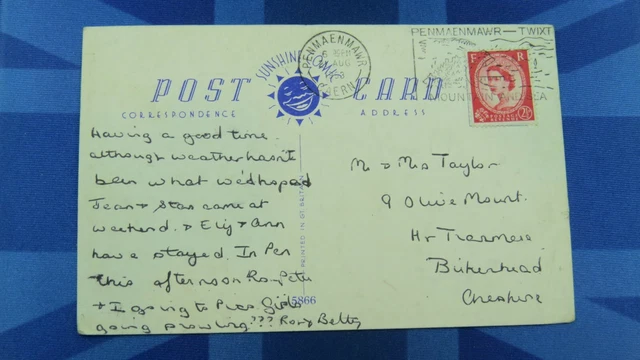 PENMAENMAWR
AUG
PENMAENMAWR — TWIXT
MOUNTAIN AND SEA
SUNSHINE
POST CARD
CORRESPONDENCE
ADDRESS
Having a good time
although weather hasn't
been what we'd hoped
Jean & Stan came at
weekend. & Eliz & Ann
have stayed. In Pen
this afternoon Ron Peter
& I going to
going prowling??? Ron & Betty
Mr & Mrs Taylor
9 Olive Mount.
Hr Tranmere
Birkenhead
Cheshire
PRINTED IN GT. BRITAIN
5866